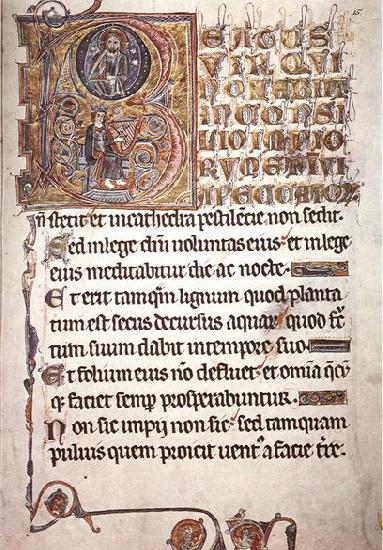 15.
BEATUS
VIR QVI
NON ABIIT
IN CONSI
LIO IMPIO
RVM ET IN VI
A PECCATOR
ñ stetit et in cathedra pestilēcie non sedit.
Sed in lege dñi voluntas eius et in lege
eius meditabitur die ac nocte.
Et erit tamq̄m lignum quod planta
tum est secus decursus aquar quod fc̄
tum suum dabit in tempore suo
Et folium eius nō defluet et omīa qcq
q faciet semp prosperabuntur.
Non sic impij non sic sed tamquam
puluis quem proicit uent' a facie tr̄e.